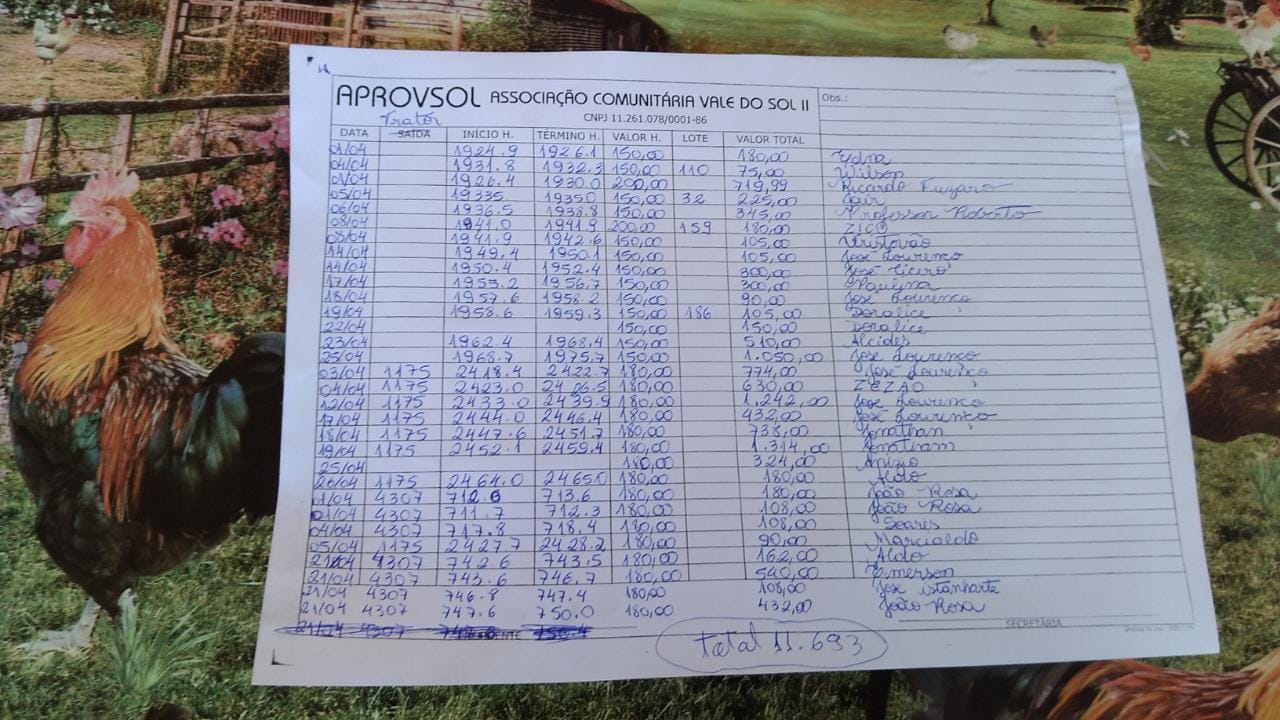 APROVSOL ASSOCIAÇÃO COMUNITÁRIA VALE DO SOL II Obs.:
CNPJ 11.261.078/0001-86
Trator
DATA SAÍDA INÍCIO H. TÉRMINO H. VALOR H. LOTE VALOR TOTAL
01/04 1924.9 1926.1 150,00 180,00 Edna
04/04 1931.8 1932.3 150,00 110 75,00 Wilson
01/04 1926.4 1930.0 200,00 719,99 Ricardo Fuzaro
05/04 19335 1935.0 150,00 32 225,00 Jair
06/04 1936.5 1938.8 150,00 345,00 Professor Roberto
08/04 1941.0 1941.9 200,00 159 180,00 ZICO
08/04 1941.9 1942.6 150,00 105,00 Cristovão
14/04 1949.4 1950.1 150,00 105,00 José Lourenço
14/04 1950.4 1952.4 150,00 300,00 José Cicero
17/04 1955.2 1956.7 150,00 300,00 Paulina
18/04 1957.6 1958.2 150,00 90,00 José Lourenço
19/04 1958.6 1959.3 150,00 186 105,00 Doralice
22/04 150,00 150,00 Doralice
23/04 1962.4 1968.4 150,00 510,00 Alcides
25/04 1968.7 1975.7 150,00 1.050,00 José Lourenço
03/04 1175 2418.4 2422.7 180,00 774,00 José Lourenço
04/04 1175 2423.0 2426.5 180,00 630,00 ZEZÃO
12/04 1175 2433.0 2439.9 180,00 1.242,00 José Lourenço
17/04 1175 2444.0 2446.4 180,00 432,00 José Lourenço
18/04 1175 2447.6 2451.7 180,00 738,00 Jonathan
19/04 1175 2452.1 2459.4 180,00 1.314,00 Jonatham
25/04 180,00 324,00 Anizio
26/04 1175 2464.0 2465.0 180,00 180,00 Aldo
01/04 4307 712.6 713.6 180,00 180,00 João Rosa
01/04 4307 711.7 712.3 180,00 108,00 João Rosa
04/04 4307 717.8 718.4 180,00 108,00 Soares
05/04 1175 2427.7 2428.2 180,00 90,00 Marcialdo
21/04 4307 742.6 743.5 180,00 162,00 Aldo
21/04 4307 743.6 746.7 180,00 540,00 Emerson
21/04 4307 746.8 747.4 180,00 108,00 José istanharte
21/04 4307 747.6 750.0 180,00 432,00 João Rosa
21/04 4307
SECRETÁRIA
Total 11.693